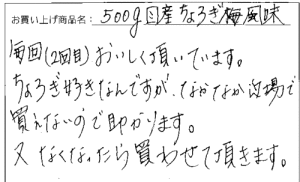 お買い上げ商品名： 500g 国産ちょろぎ梅風味
毎回(2回目)おいしく頂いています。
ちょろぎ好きなんですが、なかなか市場で
買えないので助かります。
又なくなったら買わせて頂きます。